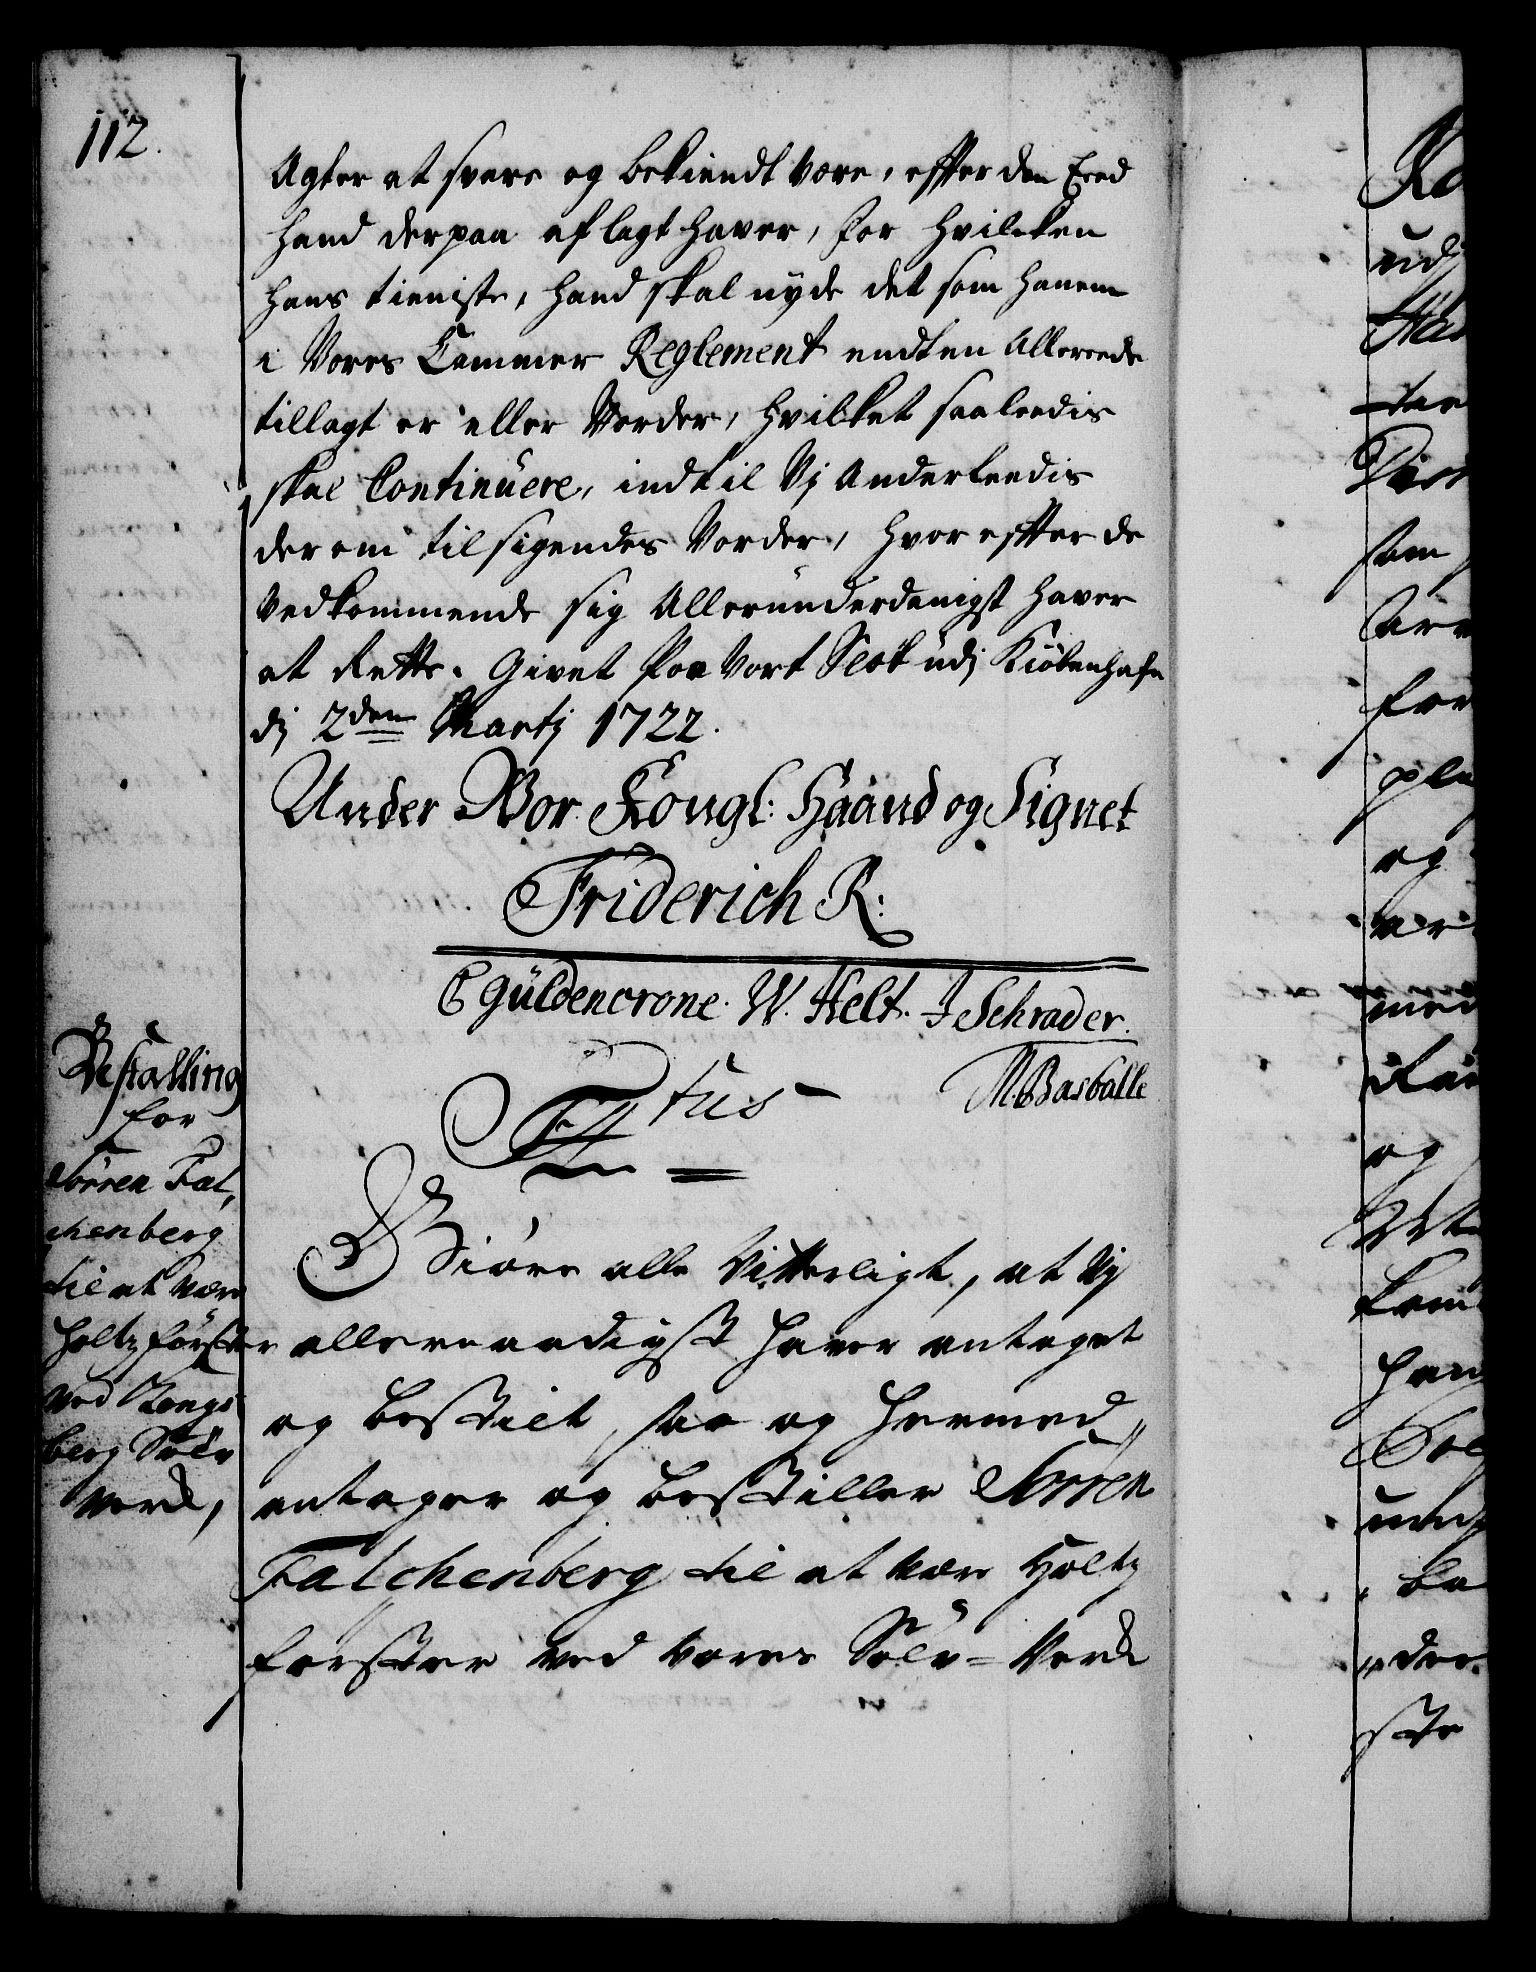 112.
Agter at svare og bekiendt være, effter den Eed
hand derpaa aflagt haver, for hvilcken
hans tieniste, hand skal nyde det som hanem
i Vores Cammer Reglement endten Allereede
tillagt er eller Vorder, hvilket saaleedis
skal Continuere, indtil Vj Anderleedis
derom tilsigendes Vorder, hvoreffter de
Vedkommende sig Allerunderdanigst haver
at Rette. Givet Paa Vort Slot udj Kiöbenhafn
dj 2den Martj 1722.
Under Vor Kongl: Haand og Signet
Friderich R:
C Güldencrone. W. Helt. J Schrader.
M. Basballe
F 4tus
Bestalling
for
Sörren Fal,
chenberg
til at være
holtzförster
ved Kongs
berg Sölv
verk,
Giöre alle Vitterligt, at Vj
allernaadigst haver antaget
og bestilt, saa og hermed
antager og bestiller Sörren
Falchenberg til at være Holtz
forster ved vores Sölv=Verk